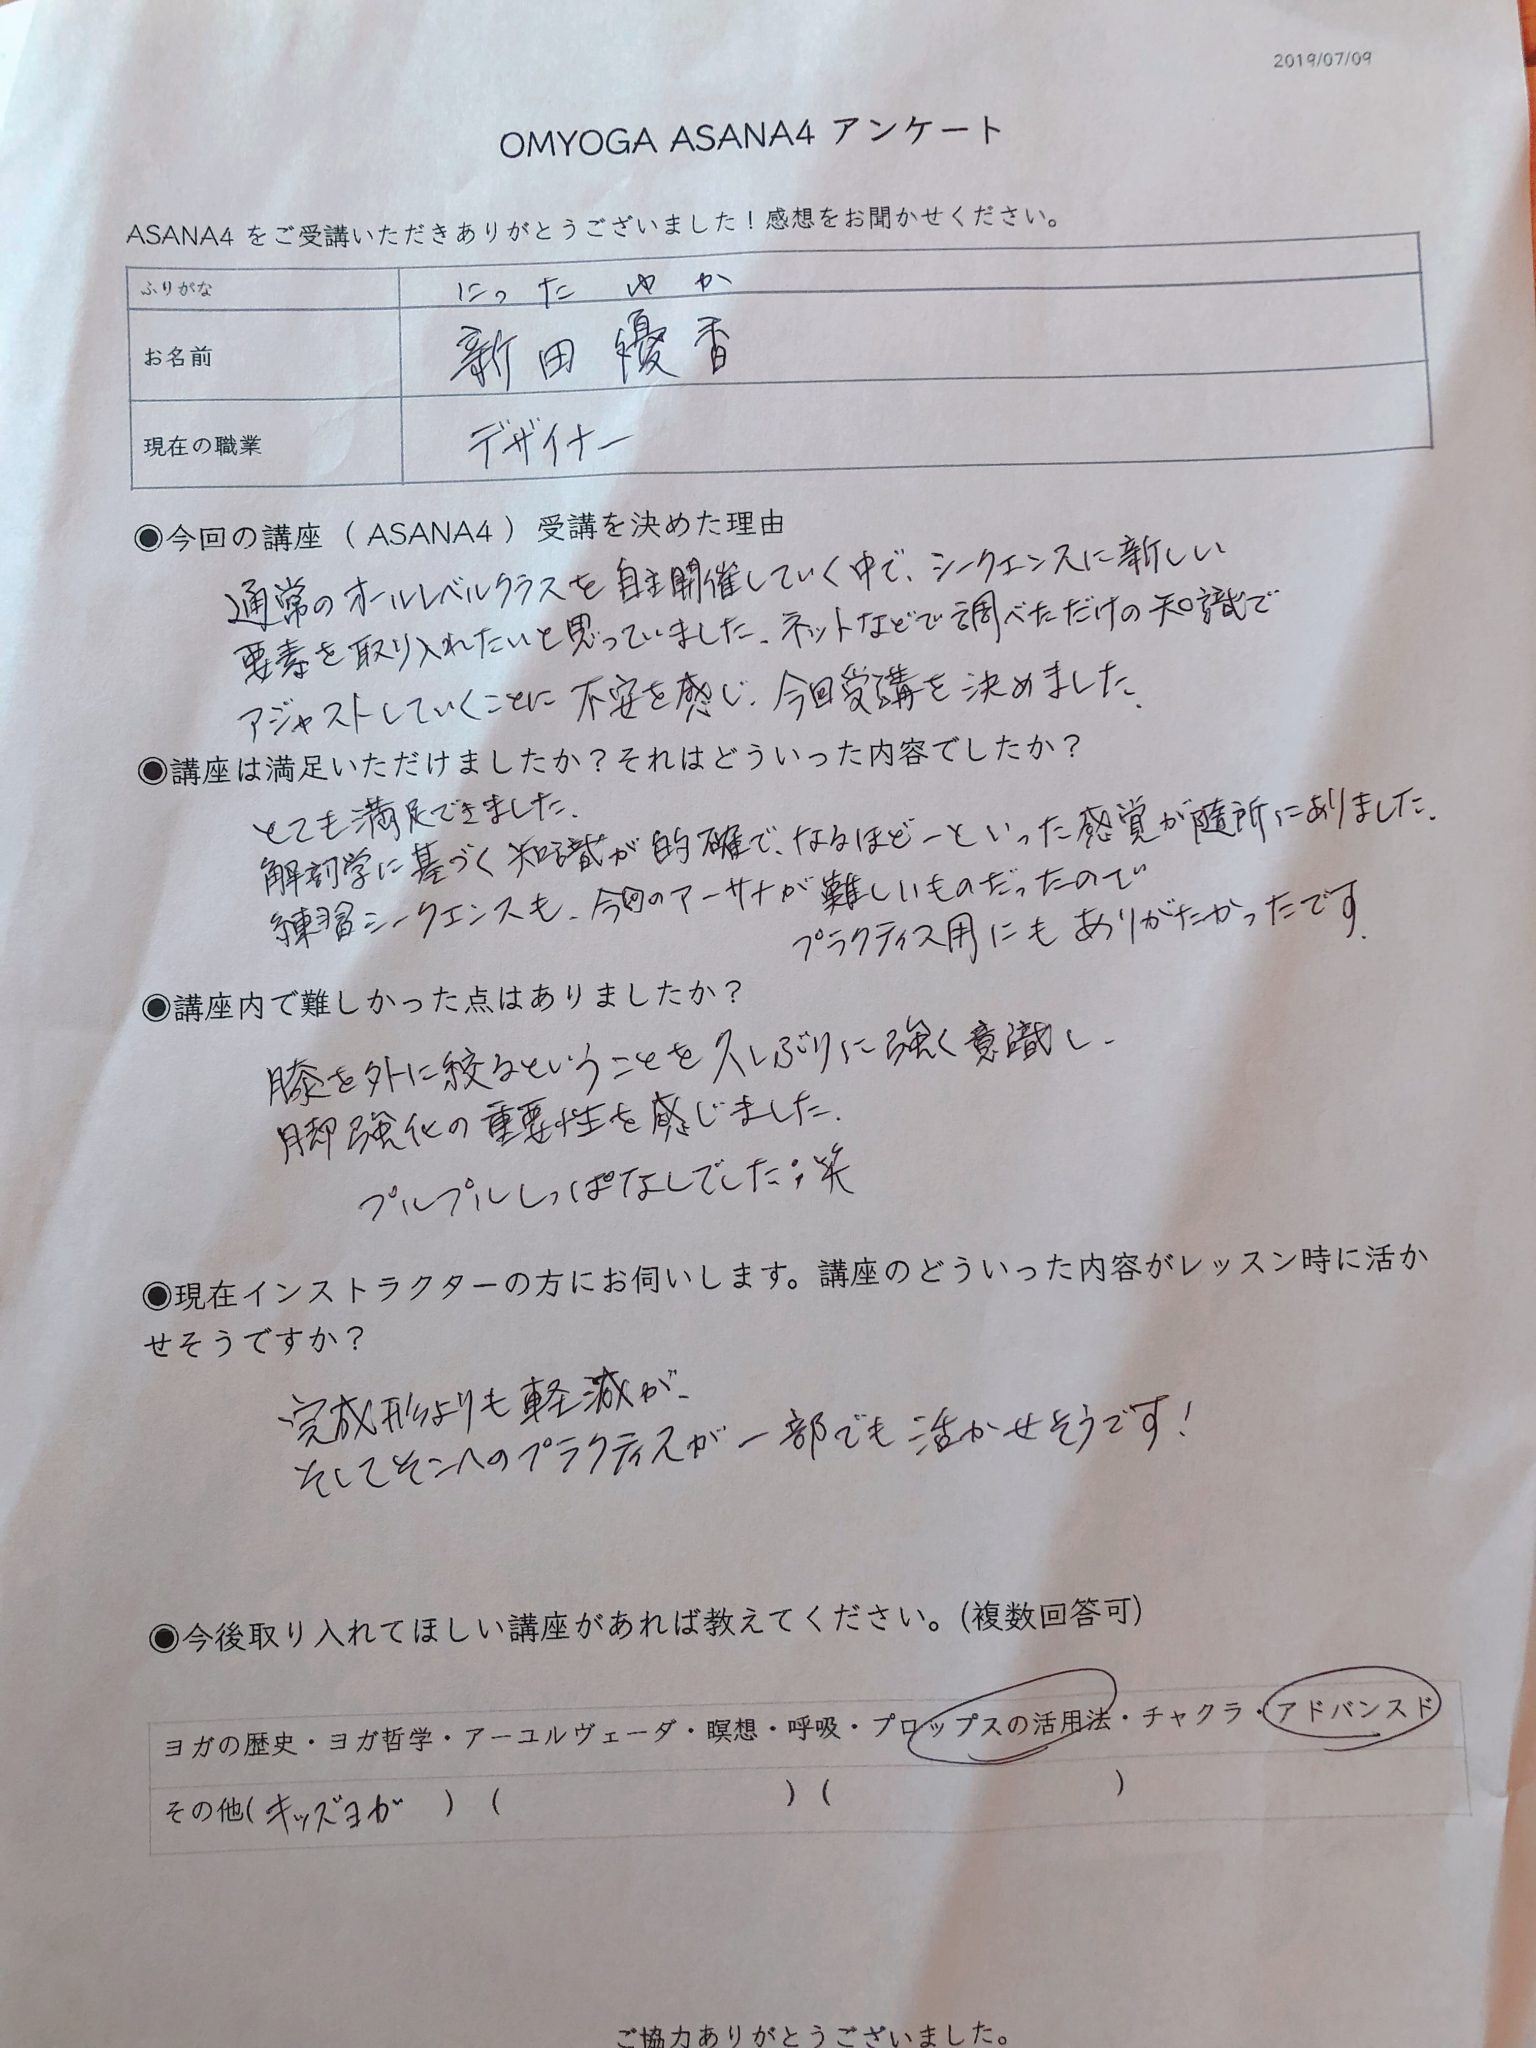 2019/07/09
OMYOGA ASANA4 アンケート
ASANA4 をご受講いただきありがとうございました！感想をお聞かせください。
ふりがな にった ゆか
お名前 新田 優香
現在の職業 デザイナー
◉今回の講座（ ASANA4 ）受講を決めた理由
通常のオールレベルクラスを自主開催していく中で、シークエンスに新しい
要素を取り入れたいと思っていました。ネットなどで調べただけの知識で
アジャストしていくことに不安を感じ、今回受講を決めました。
◉講座は満足いただけましたか？それはどういった内容でしたか？
とても満足できました。
解剖学に基づく知識が的確で、なるほどーといった感覚が随所にありました。
練習シークエンスも、今回のアーサナが難しいものだったので
プラクティス用にもありがたかったです。
◉講座内で難しかった点はありましたか？
膝を外に絞るということを久しぶりに強く意識し、
脚強化の重要性を感じました。
プルプルしっぱなしでした；笑
◉現在インストラクターの方にお伺いします。講座のどういった内容がレッスン時に活か
せそうですか？
完成形よりも軽減が、
そしてそこへのプラクティスが一部でも活かせそうです！
◉今後取り入れてほしい講座があれば教えてください。(複数回答可)
ヨガの歴史・ヨガ哲学・アーユルヴェーダ・瞑想・呼吸・プロップスの活用法・チャクラ・アドバンスド
その他( キッズヨガ ) ( ) ( )
ご協力ありがとうございました。